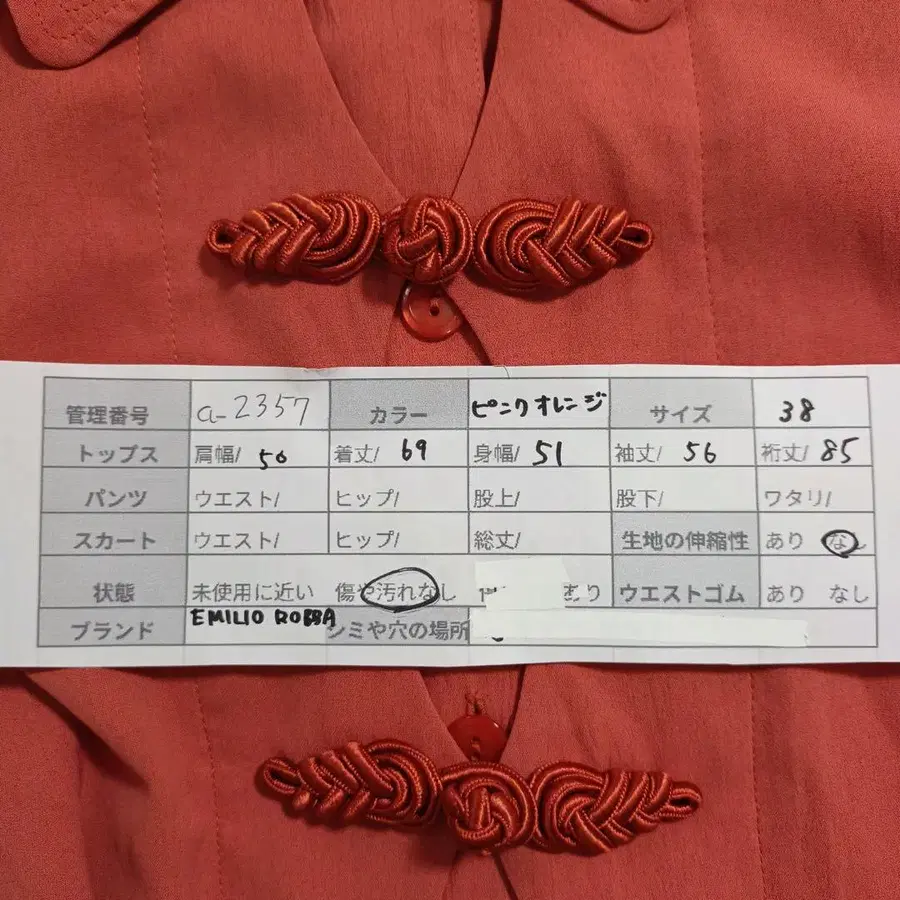 管理番号 a-2357 カラー ピンクオレンジ サイズ 38
トップス 肩幅/ 50 着丈/ 69 身幅/ 51 袖丈/ 56 裄丈/ 85
パンツ ウエスト/ ヒップ/ 股上/ 股下/ ワタリ/
スカート ウエスト/ ヒップ/ 総丈/ 生地の伸縮性 あり なし
状態 未使用に近い 傷や汚れなし あり ウエストゴム あり なし
ブランド EMILIO ROBBA シミや穴の場所